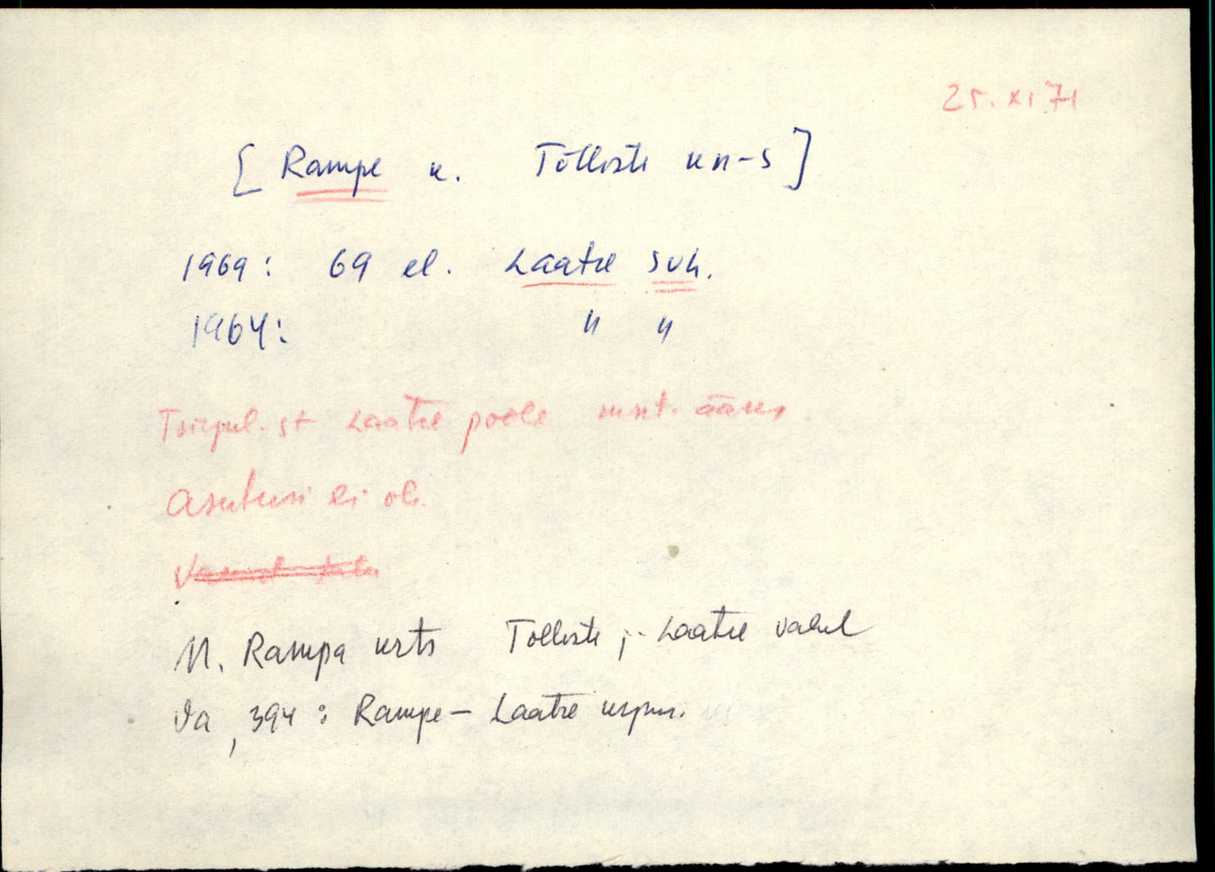 25. XI 71
[ Rampe k. Tõlliste kn-s ]
1969: 69 el. Laatre svh.
1964: " "
Tsirgul. st Laatre poole mnt. ääres.
Asutusi ei ole.
M. Rampa krts Tõlliste ja Laatre vahel
Va, 394: Rampe – Laatre